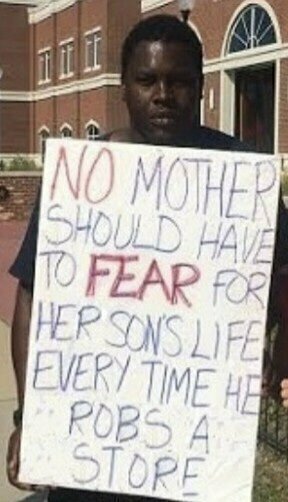 NO MOTHER
SHOULD HAVE
TO FEAR FOR
HER SON'S LIFE
EVERY TIME HE
ROBS A
STORE